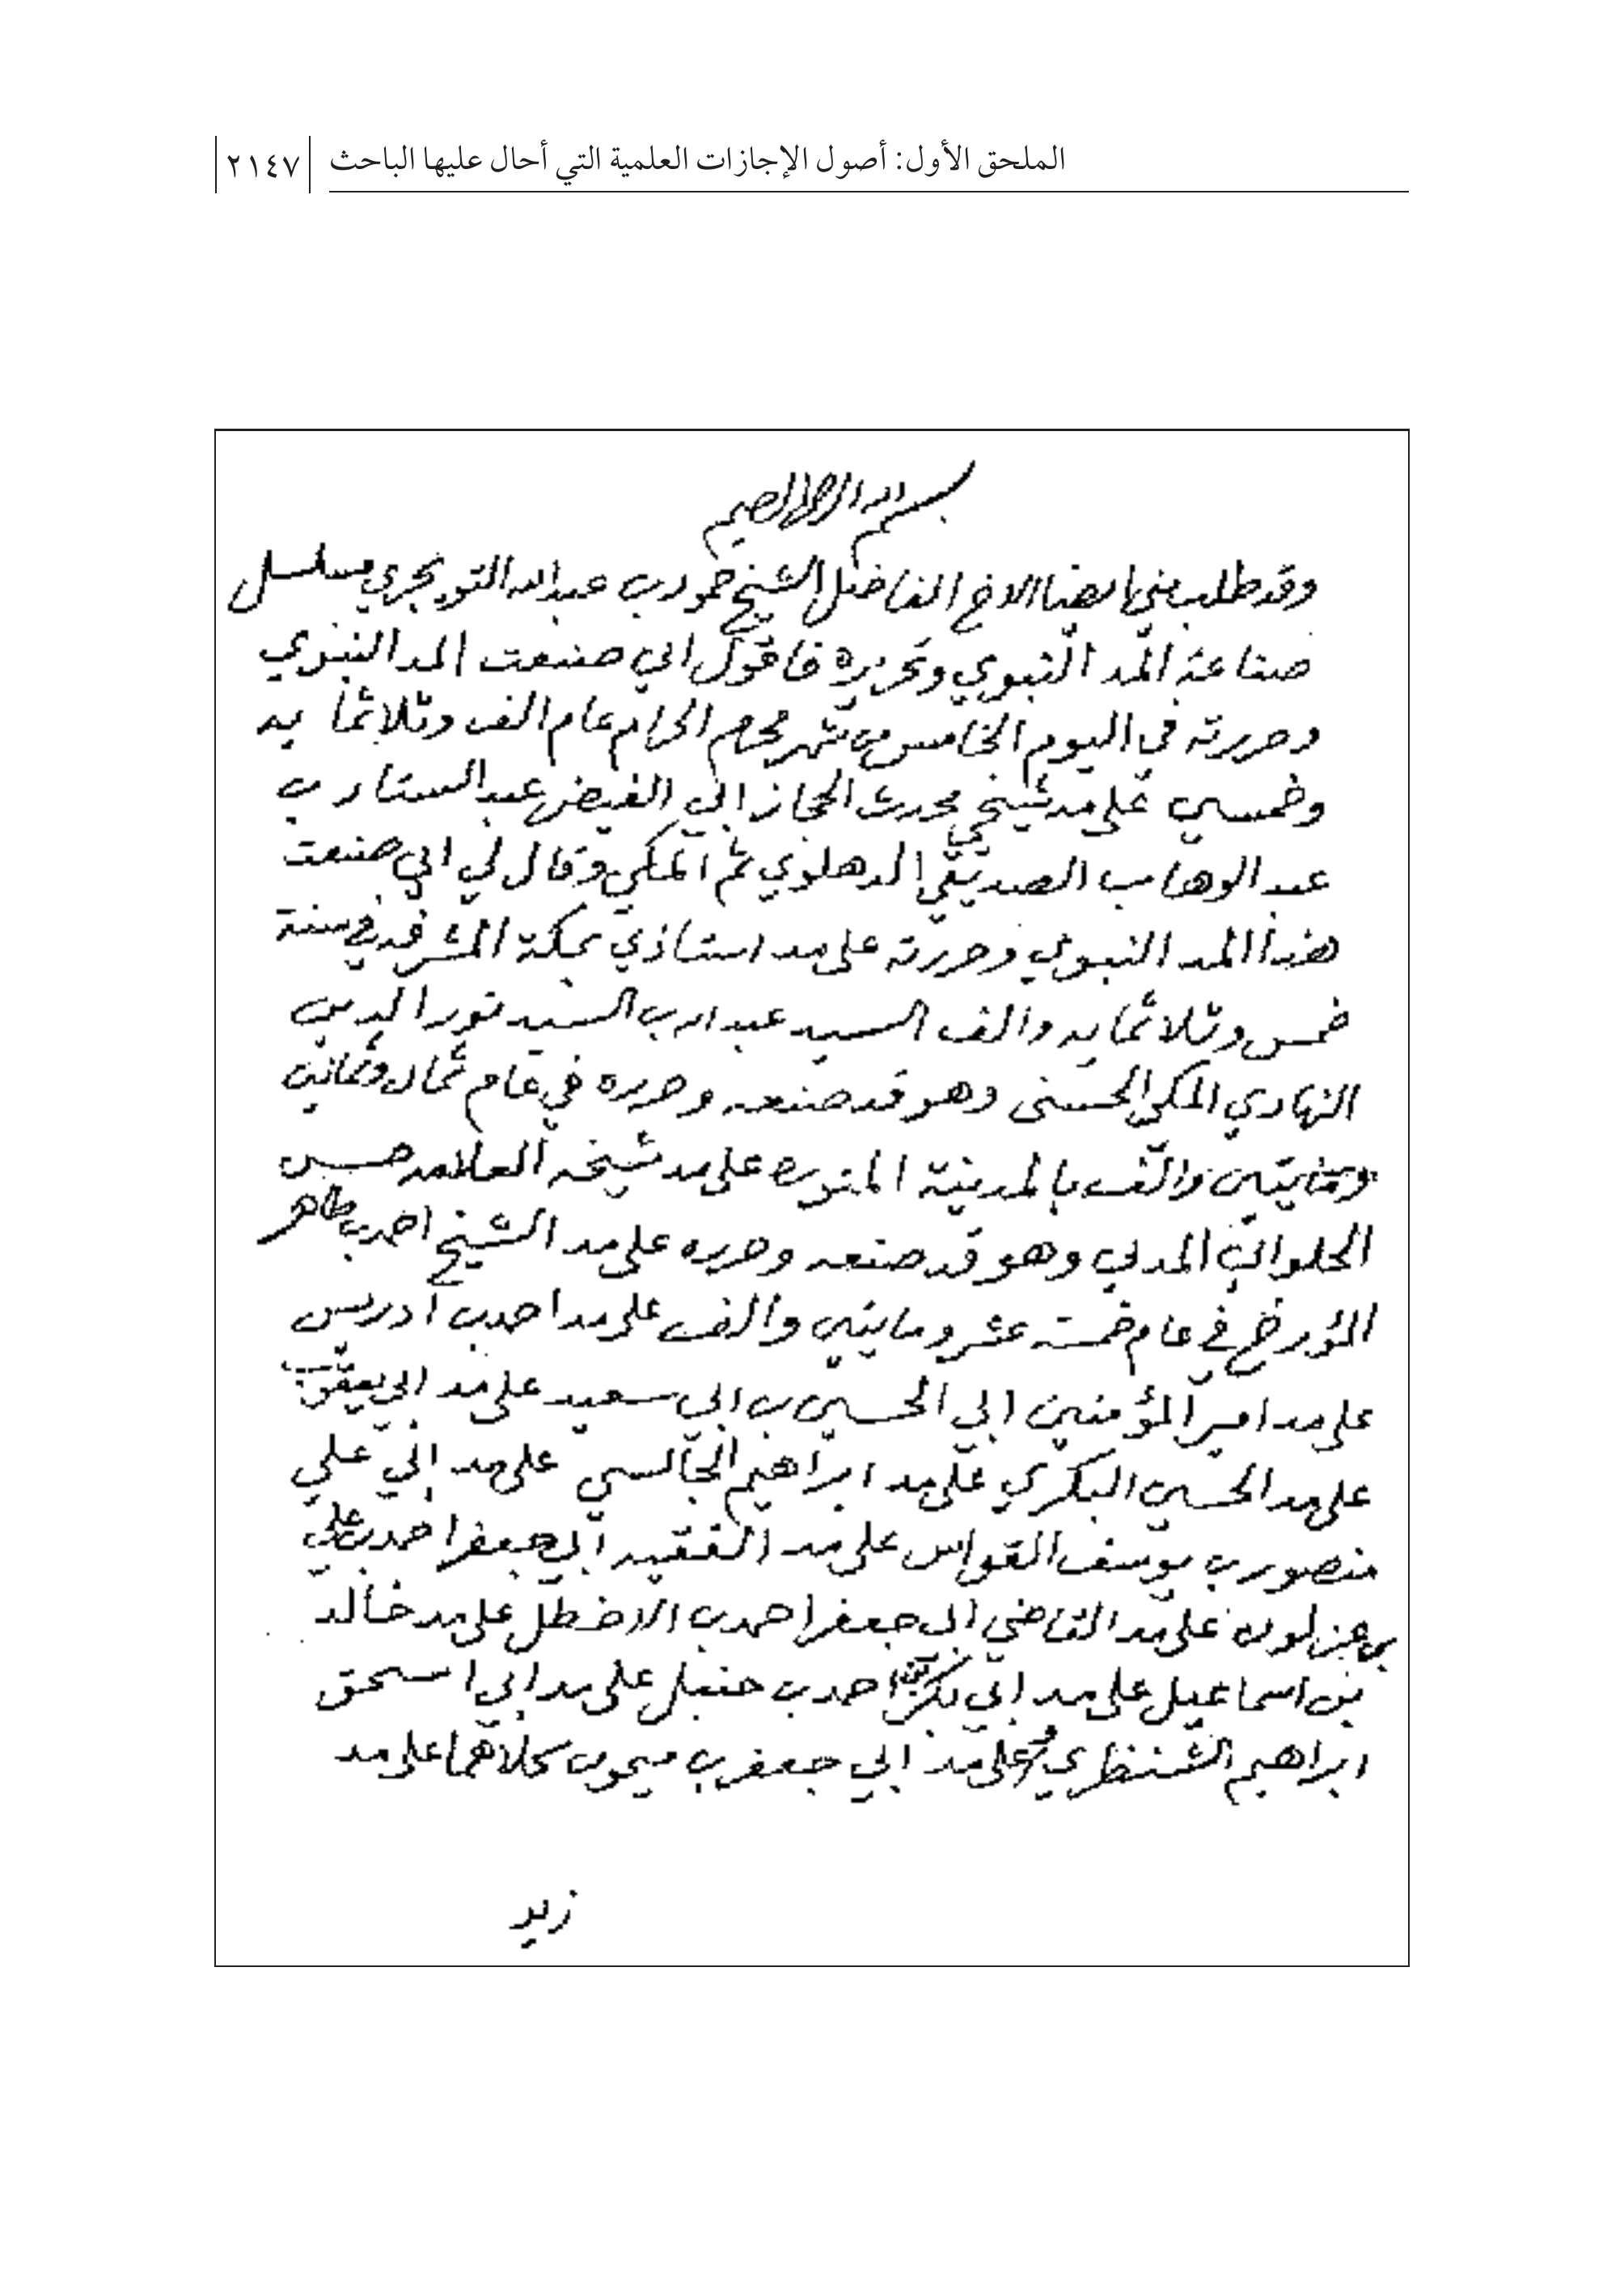 الملحق الأول: أصول الإجازات العلمية التي أحال عليها الباحث ٢١٤٧
بسم الله الرحمن الرحيم
وقد طلب مني ايضا الاخ الفاضل الشيخ حمود بن عبدالله التويجري مسلسل
صناعة المد النبوي وتحريره فاقول اني صنعت المد النبوي
وحررته في اليوم الخامس من شهر محرم الحرام عام الف وثلاثمايه
وخمسين على مد شيخي محدث الحجاز ابي الفيض عبد الستار بن
عبد الوهاب الصديقي الدهلوي ثم المكي وقال لي اني صنعت
هذا المد النبوي وحررته على مد استاذي بمكة المشرفه في سنة
خمس وثلاثمايه والف السيد عبدالله بن السيد نور الدين
النهاري المكي الحسني وهو قد صنعه وحرره في عام ثمان وثمانين
ومايتين والف بالمدينة المنوره على مد شيخه العلامه حسين
الحلواني المدني وهو قد صنعه وحرره على مد الشيخ احمد بن طاهر
المؤرخ في عام خمسة عشر ومايتين والف على مد احمد بن ادريس
على مد امير المؤمنين ابي الحسين بن ابي سعيد على مد ابي يعقوب
على مد الحسين البكري على مد ابراهيم الجالسي على مد ابي علي
منصور بن يوسف القواس على مد الفقيه ابي جعفر احمد بن علي
بن عزلون على مد القاضي ابي جعفر احمد بن الاخطل على مد خالد
بن اسماعيل على مد ابي بكر احمد بن حنبل على مد ابي اسحق
ابراهيم الشنظري وعلى مد ابي جعفر بن ميمون كلاهما على مد
زيد